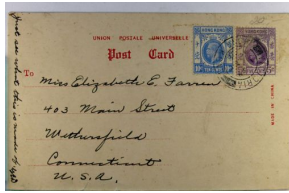 UNION POSTALE UNIVERSELLE
Post Card
HONG KONG
HONG KONG
To
Miss Elizabeth E. Farren
403 Main Street
Wethersfield
Connecticut
U.S.A.
Just see what this is made of